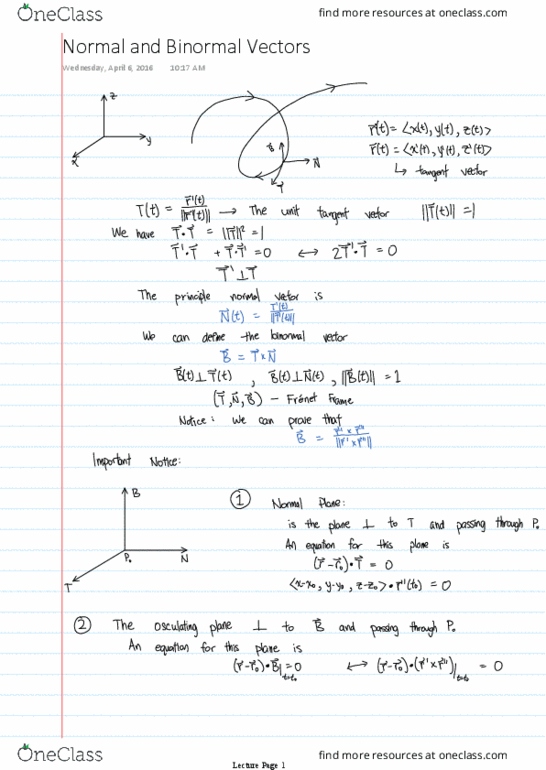 OneClass
find more resources at oneclass.com
Normal and Binormal Vectors
Wednesday, April 6, 2016 10:17 AM
z
y
x
B
N
T
r⃗(t) = <x(t), y(t), z(t)>
r⃗'(t) = <x'(t), y'(t), z'(t)>
↳ tangent vector
T(t) = r⃗'(t)/||r⃗'(t)|| → The unit tangent vector ||T⃗(t)|| = 1
We have T⃗·T⃗ = ||T⃗||² = 1
T⃗'·T⃗ + T⃗·T⃗' = 0 ↔ 2T⃗'·T⃗ = 0
T⃗' ⊥ T⃗
The principle normal vetor is
N⃗(t) = T⃗'(t)/||T⃗'(t)||
We can define the binormal vector
B⃗ = T⃗ × N⃗
B⃗(t) ⊥ T⃗(t) , B⃗(t) ⊥ N⃗(t) , ||B⃗(t)|| = 1
(T⃗, N⃗, B⃗) – Frénet Frame
Notice: we can prove that
B⃗ = r⃗' × r⃗''/||r⃗' × r⃗''||
Important Notice:
B
P₀
N
T
① Normal Plane:
is the plane ⊥ to T and passing through P₀
An equation for this plane is
(r⃗ - r⃗₀)·T⃗ = 0
<x-x₀, y-y₀, z-z₀> · r⃗'(t₀) = 0
② The osculating plane ⊥ to B⃗ and passing through P₀
An equation for this plane is
(r⃗ - r⃗₀)·B⃗|t=t₀ = 0 ↔ (r⃗ - r⃗₀)·(r⃗' × r⃗'')|t=t₀ = 0
OneClass
find more resources at oneclass.com
Lecture Page 1